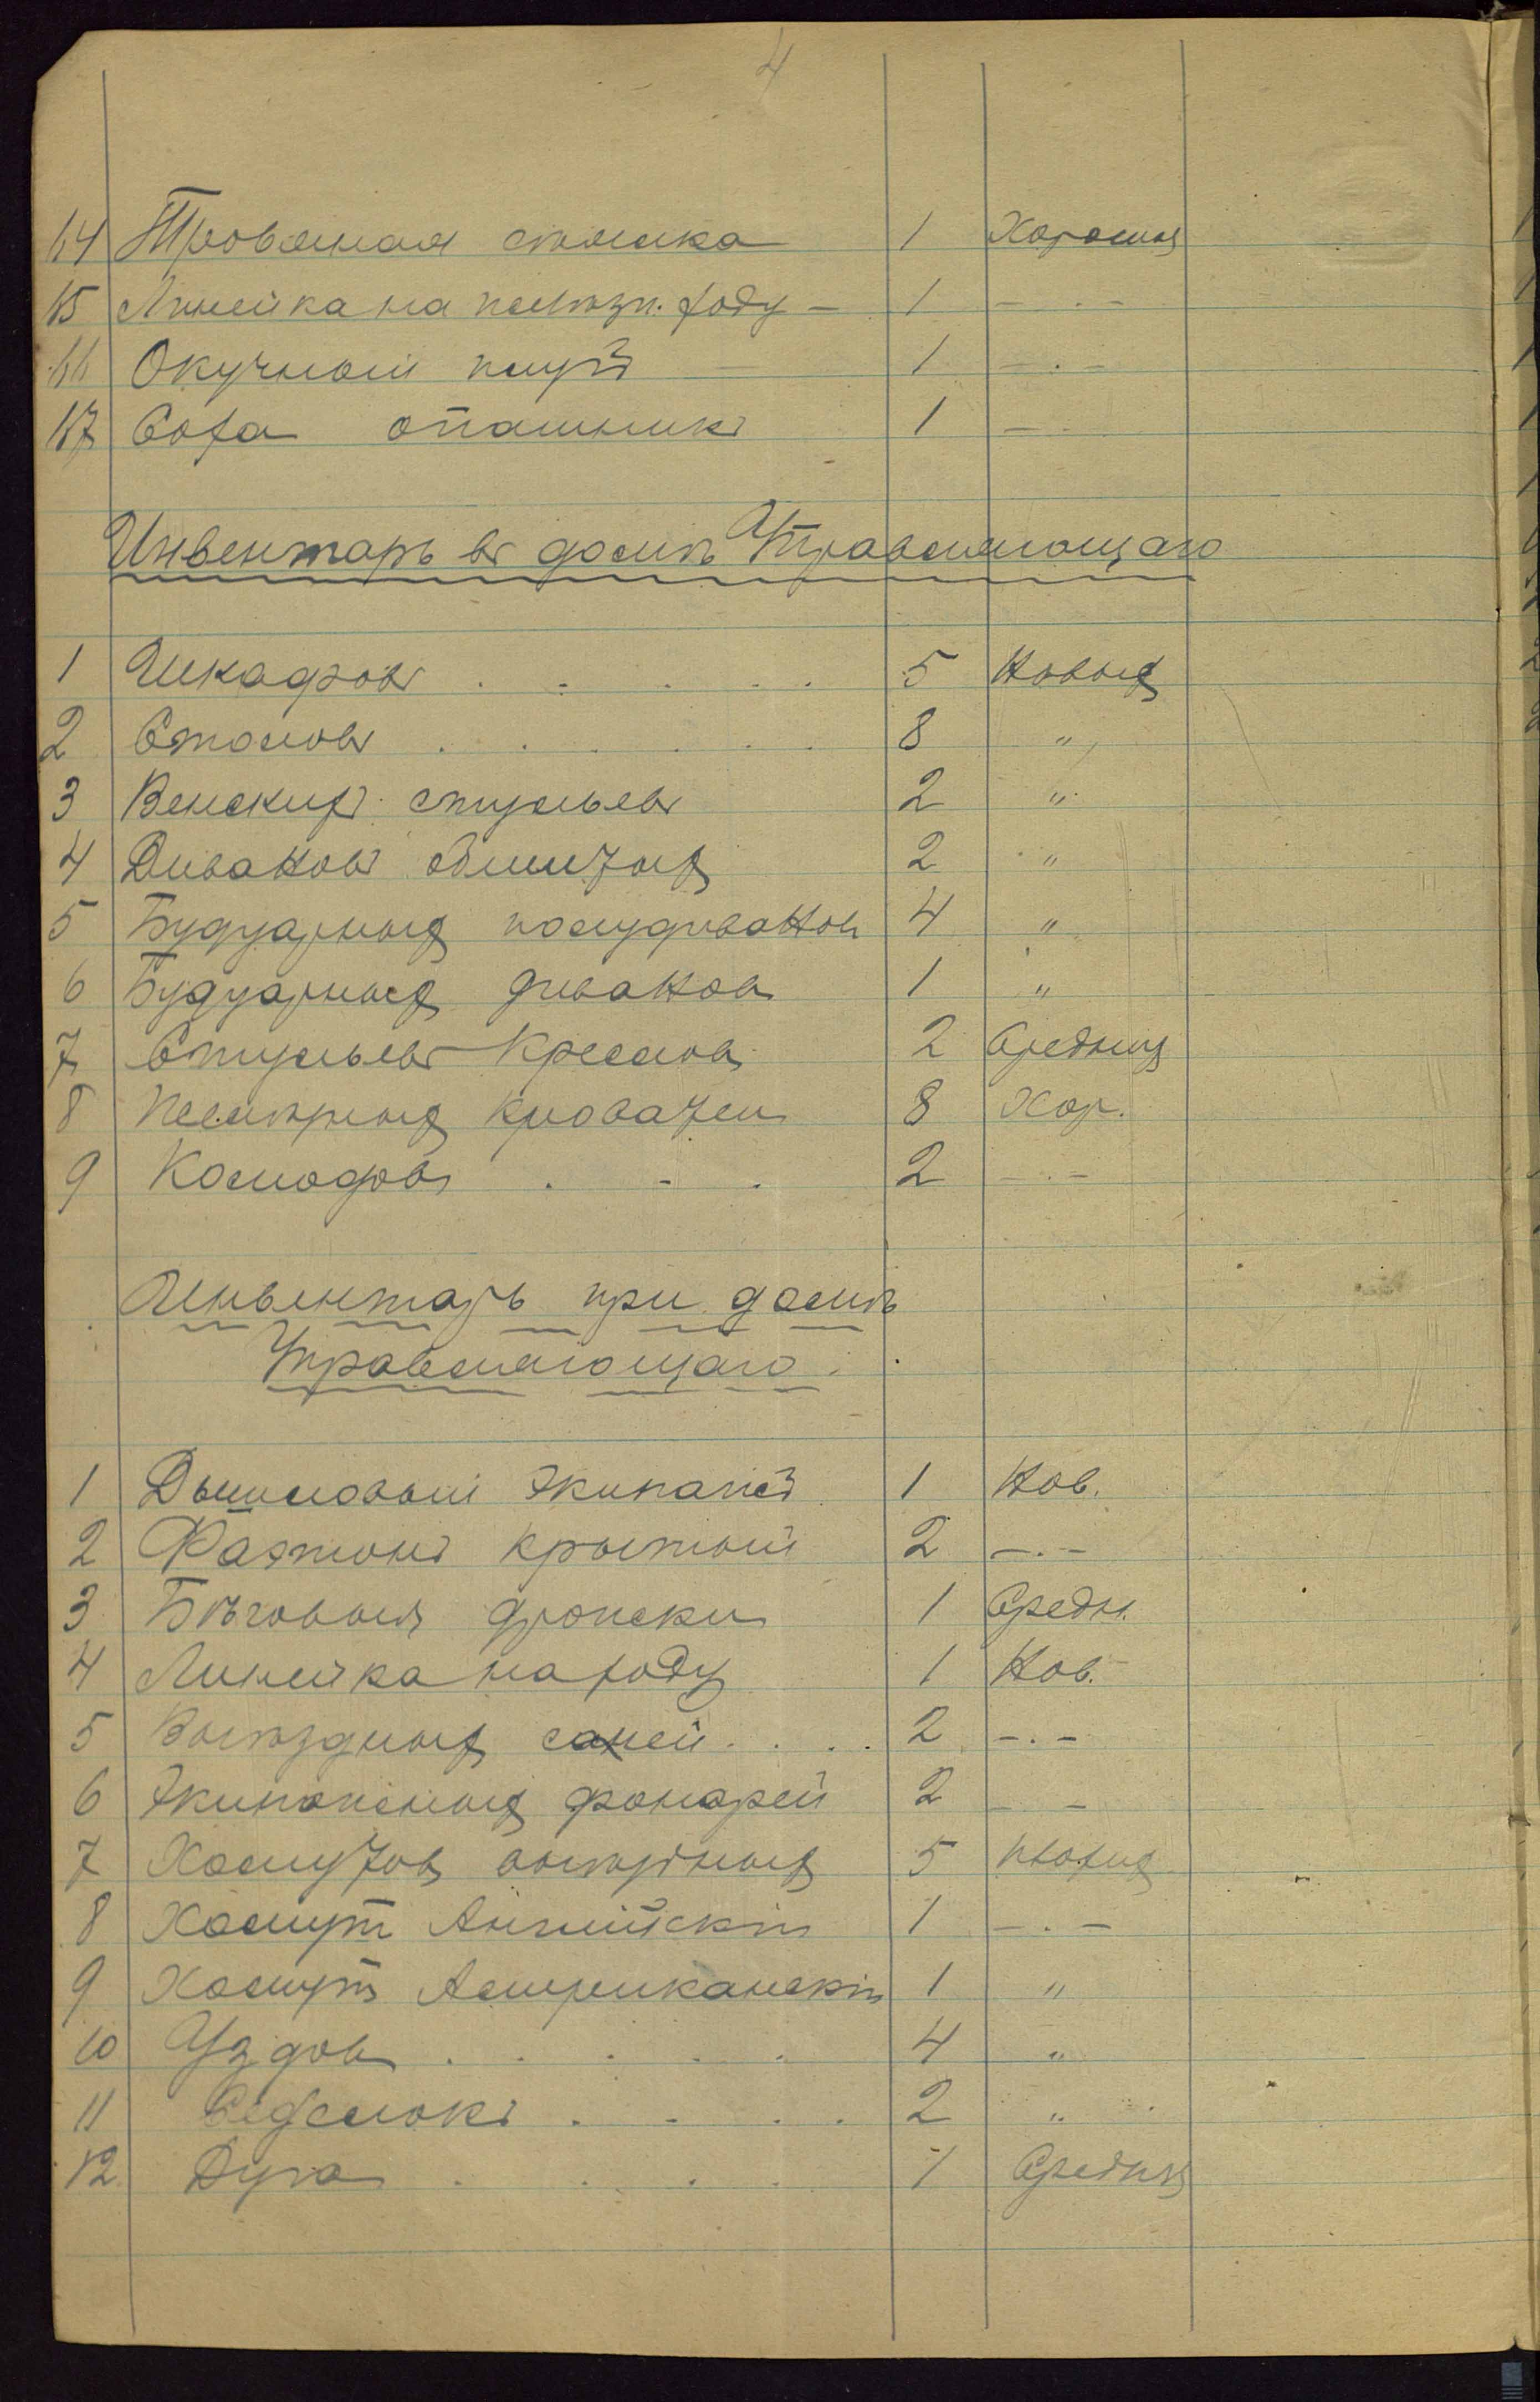 4
14 Травяная сеялка 1 Хорошая
15 Линейка на желѣзн. ходу — 1 — . —
16 Окучный плугъ — 1 — . —
17 Соха опашникъ 1 — . —
Инвентарь въ домѣ Управляющаго
1 Шкафовъ . . . . . 5 Новыхъ
2 Столовъ . . . . . . 8 "
3 Венскихъ стульевъ 2 "
4 Дивановъ обшитыхъ 2 "
5 Будуарныхъ полудивановъ 4 "
6 Будуарныхъ дивановъ 1 "
7 Стульевъ Креселъ 2 Среднихъ
8 Желѣзныхъ кроватей 8 Хор.
9 Комодовъ . . . 2 — . —
Инвентарь при домѣ
Управляющаго.
1 Дышловый экипажъ 1 Нов.
2 Фаэтонъ крытый 2 — . —
3 Бѣговыя дрожки 1 Средн.
4 Линейка на ходу 1 Нов.
5 Выѣздныхъ саней . . . . 2 — . —
6 Экипажныхъ фонарей 2 — —
7 Хомутовъ выѣздныхъ 5 Новыхъ
8 Хомутъ Англійскій 1 — . —
9 Хомутъ Американскій 1 "
10 Уздовъ . . . . . 4 "
11 Седелокъ . . . . 2 "
12 Дуга . . . . 1 Средняя